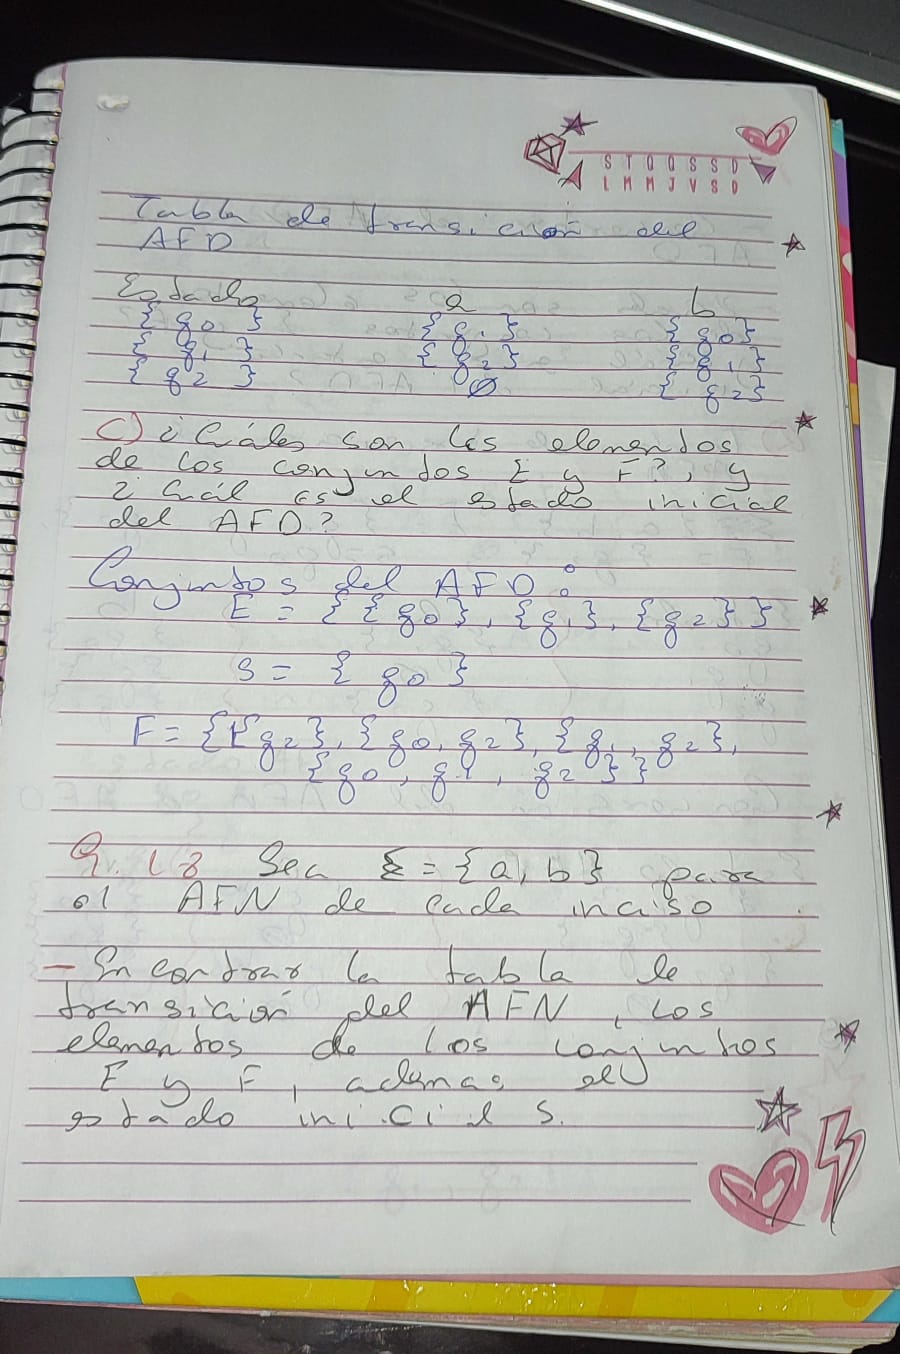 S T Q Q S S D
L M M J V S D
Tabla de transición del
AFD
Estado a b
{q0} {q1} {q0}
{q1} {q2} {q1}
{q2} ∅ {q2}
c) ¿Cuáles son los elementos
de los conjuntos E y F?, y
¿Cuál es el estado inicial
del AFD?
Conjuntos del AFD:
E = {{q0}, {q1}, {q2}}
S = {q0}
F = {{q2}, {q0, q2}, {q1, q2},
{q0, q1, q2}}
Sea Σ = {a, b} para
el AFN de cada inciso
- Encontrar la tabla de
transición del AFN, los
elementos de los conjuntos
E y F, ademas, el
estado inicial S.